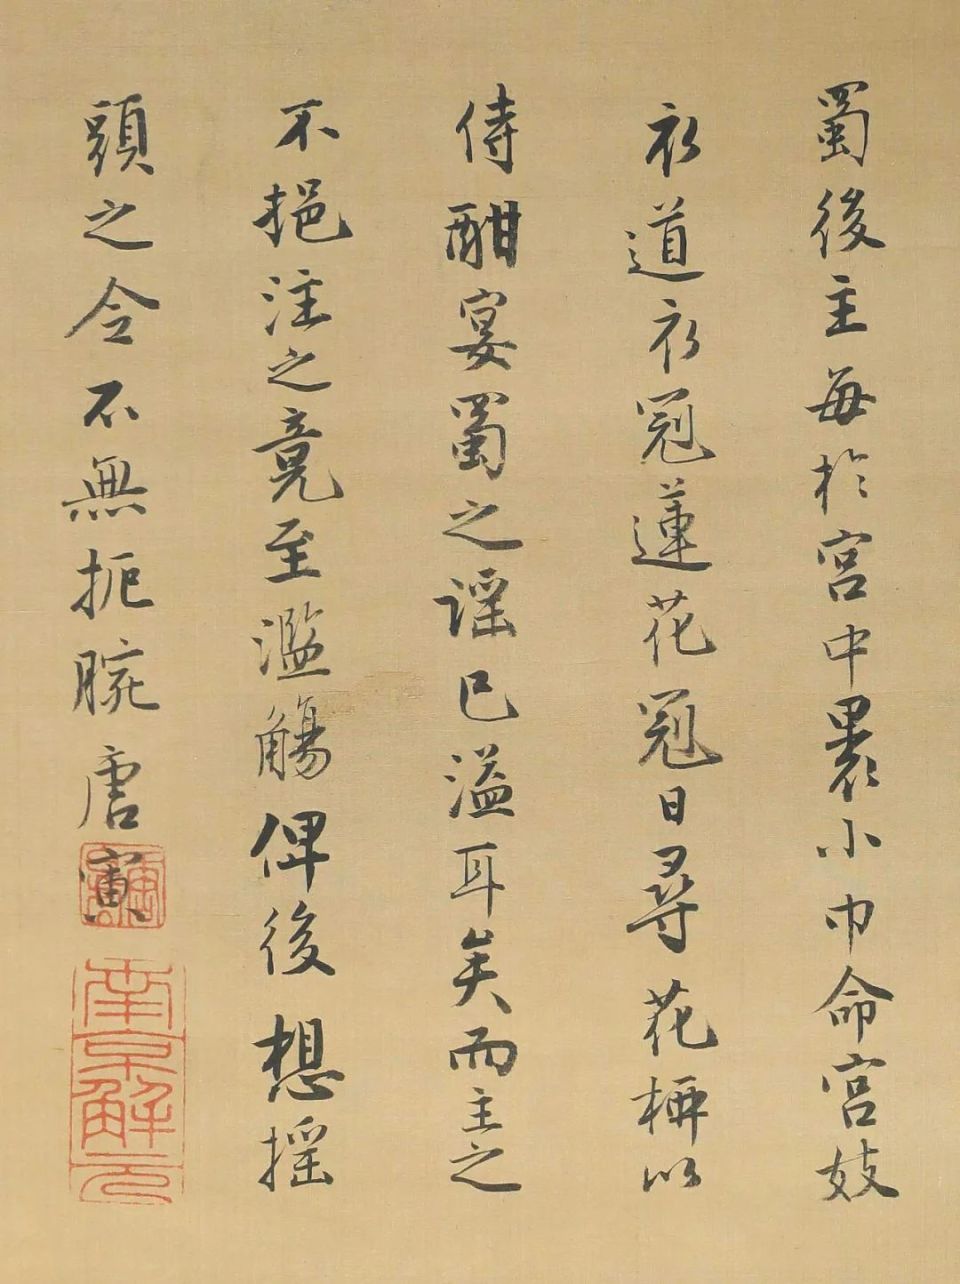 蜀後主每於宮中裹小巾命宮妓
衣道衣冠蓮花冠日尋花柳以
侍酣宴蜀之謠已溢耳矣而主之
不挹注之竟至濫觴俾後想摇
頭之令不無扼腕唐寅
南京解元